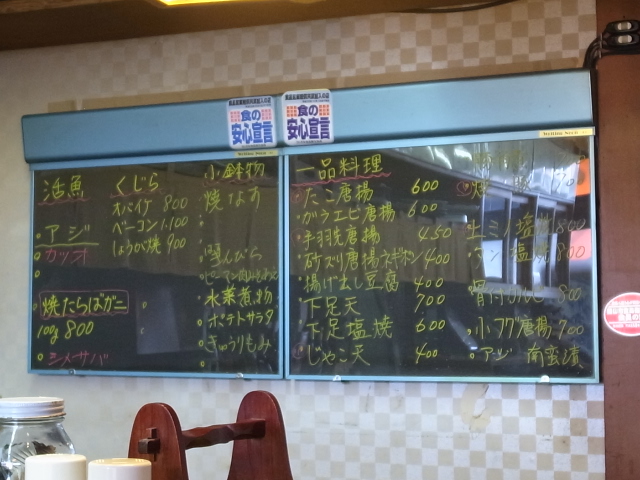 食の
安心宣言
食の
安心宣言
活魚
アジ
カツオ
焼たらばガニ
100g 800
シメーサバ
くじら
オバイケ 800
ベーコン 1.100
しょうが焼 900
小鉢物
焼なす
水菜煮物
ポテトサラダ
きゅうりもみ
一品料理
たこ唐揚 600
ガラエビ唐揚 600
手羽先唐揚 450
砂ズリ唐揚ネギポン 400
揚げ出し豆腐 400
下足天 700
下足塩焼 600
じゃこ天 400
上ミノ塩焼 800
タン塩焼 800
骨付 800
小フグ唐揚 700
アジ 南蛮漬